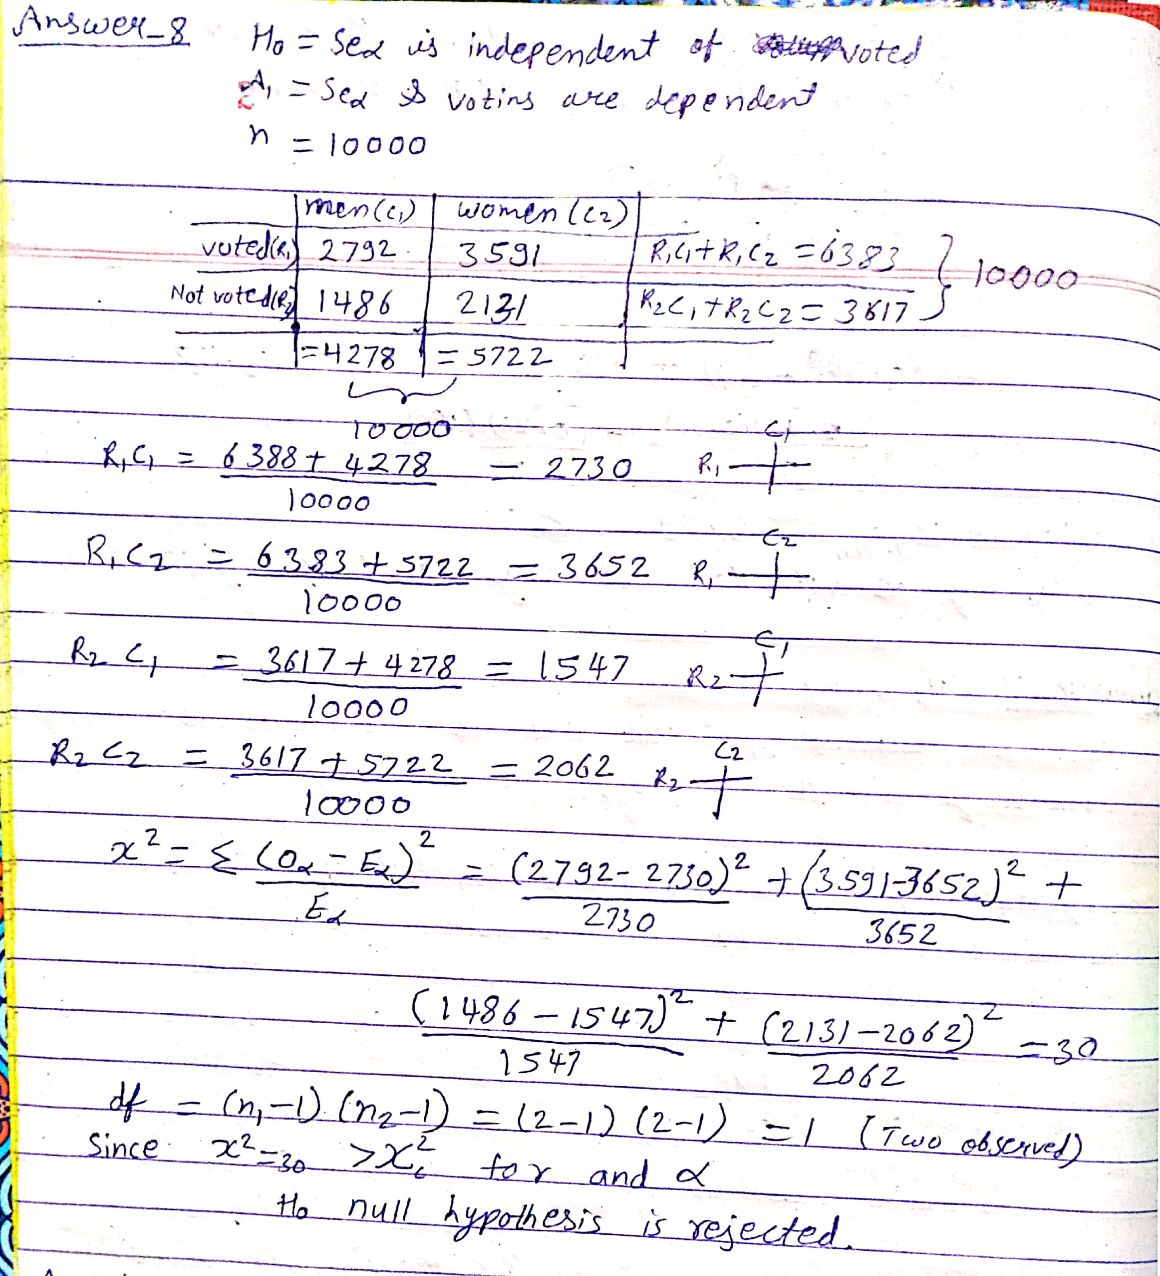 Answer-8
H₀ = Sex is independent of voted
A₁ = Sex & voting are dependent
n = 10000
men (C₁) women (C₂)
voted (R₁) 2792 3591 R₁C₁ + R₁C₂ = 6383
10000
Not voted (R₂) 1486 2131 R₂C₁ + R₂C₂ = 3617
= 4278 = 5722
10000
R₁C₁ = 6388 + 4278 / 10000 = 2730 R₁ C₁
R₁C₂ = 6383 + 5722 / 10000 = 3652 R₁ C₂
R₂C₁ = 3617 + 4278 / 10000 = 1547 R₂ C₁
R₂C₂ = 3617 + 5722 / 10000 = 2062 R₂ C₂
x² = Σ (Oα - Eα)² / Eα = (2792 - 2730)² / 2730 + (3591 - 3652)² / 3652 +
(1486 - 1547)² / 1547 + (2131 - 2062)² / 2062 = 30
df = (n₁-1) (n₂-1) = (2-1) (2-1) = 1 (Two observed)
Since x² = 30 > x² for r and α
H₀ null hypothesis is rejected.